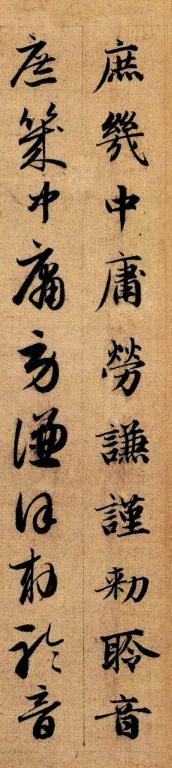 庶幾中庸勞謙謹勅聆音
庶幾中庸勞謙謹勅聆音